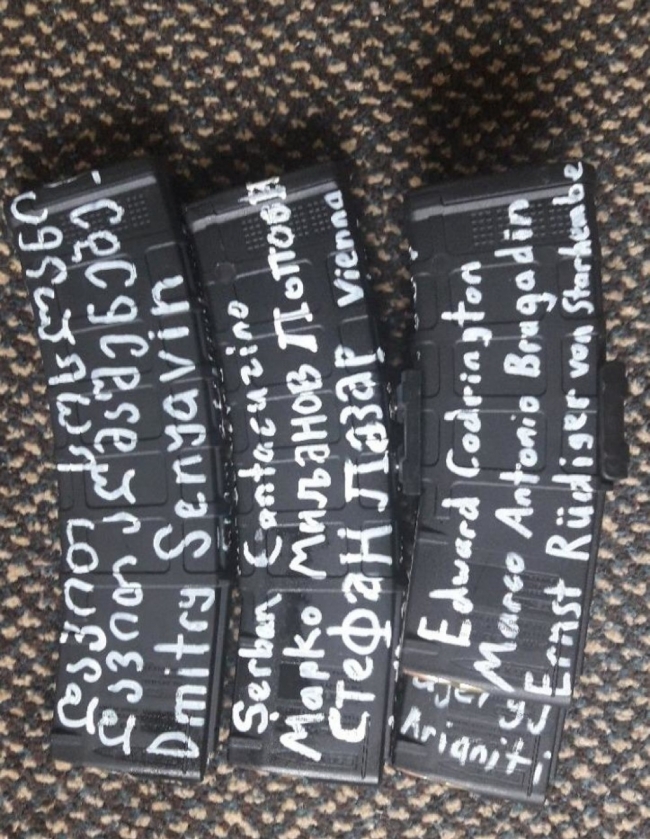 დავით
დავით აღმაშენებელი
Dmitry Senyavin
Șerban Cantacuzino
Марко Миљанов Попови
Стефан Лазар Vienna
Edward Codrington
Marco Antonio Bragadin
Ernst Rüdiger von Starhembe
Arianiti